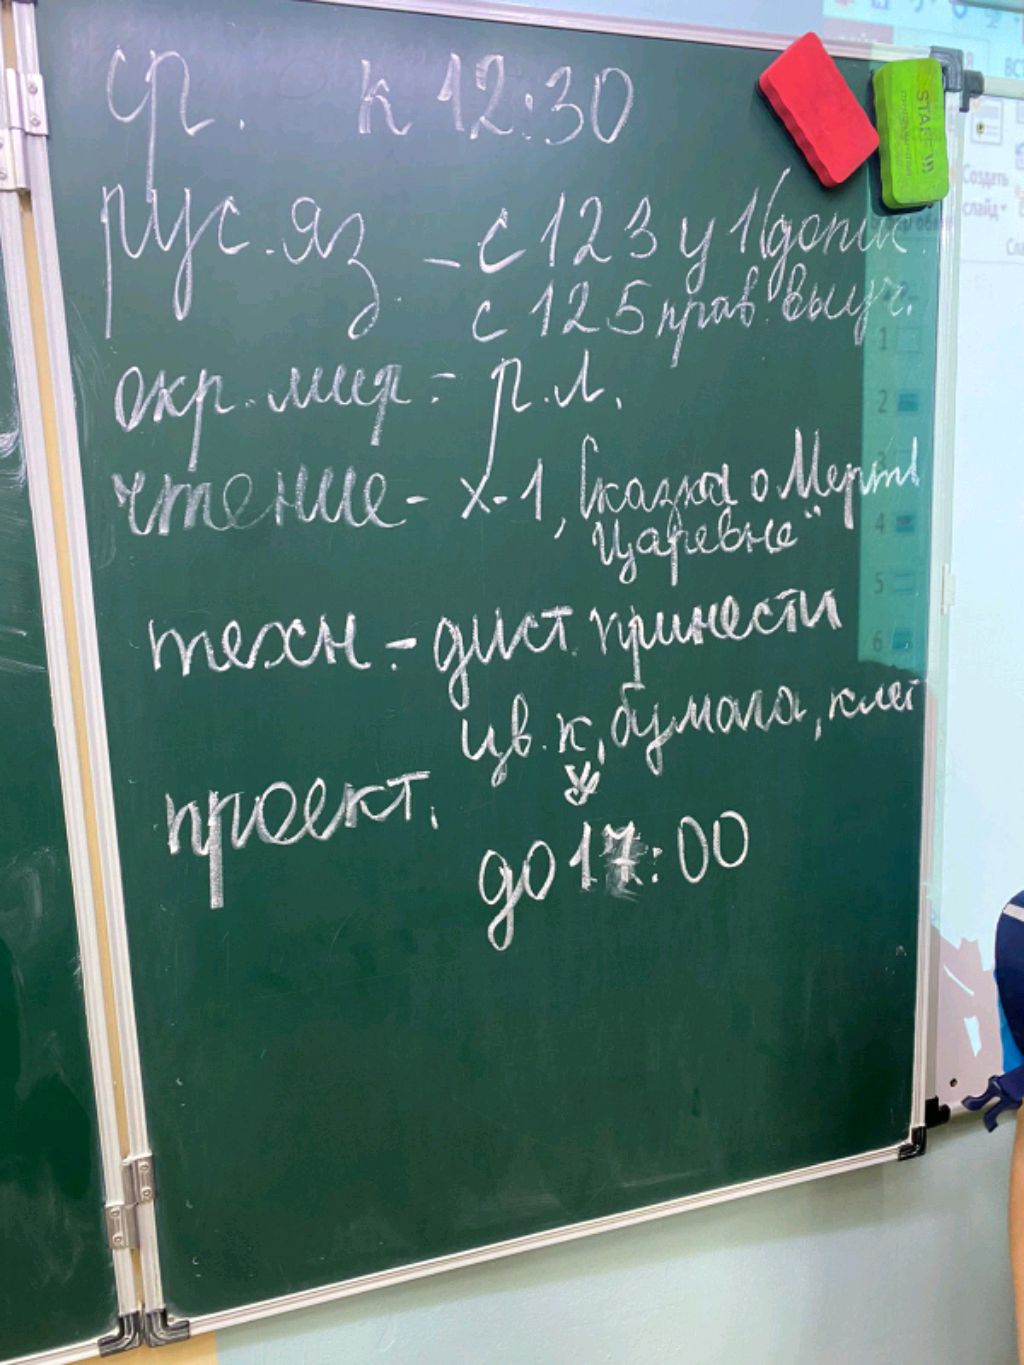 ср. к 12:30
рус. яз. - с 123 у 1 (допис
с 125 прав. выуч.
окр. мир - р. л.
чтение - х-1, Сказка о Мертв
Царевне"
техн - дист. принести
цв. к, бумага, клей
проект.
до 17:00
STAFF
Создать
слайд
1
2
4
5
6